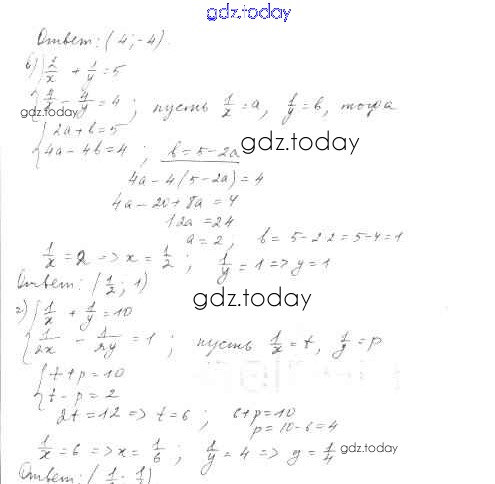 gdz.today
Ответ: (4; -4).
в) { 2/x + 1/y = 5
{ 4/x - 4/y = 4 ; пусть 1/x = a, 1/y = b, тогда
gdz.today
{ 2a + b = 5
{ 4a - 4b = 4 ; b = 5 - 2a
gdz.today
4a - 4(5 - 2a) = 4
4a - 20 + 8a = 4
12a = 24
a = 2, b = 5 - 2·2 = 5 - 4 = 1
1/x = 2 => x = 1/2 ; 1/y = 1 => y = 1
Ответ: (1/2 ; 1)
gdz.today
г) { 1/x + 1/y = 10
{ 1/2x - 1/2y = 1 ; пусть 1/x = t, 1/y = p
{ t + p = 10
{ t - p = 2
2t = 12 => t = 6 ; 6 + p = 10
p = 10 - 6 = 4
1/x = 6 => x = 1/6 ; 1/y = 4 => y = 1/4
gdz.today
Ответ: (1/6 ; 1/4)